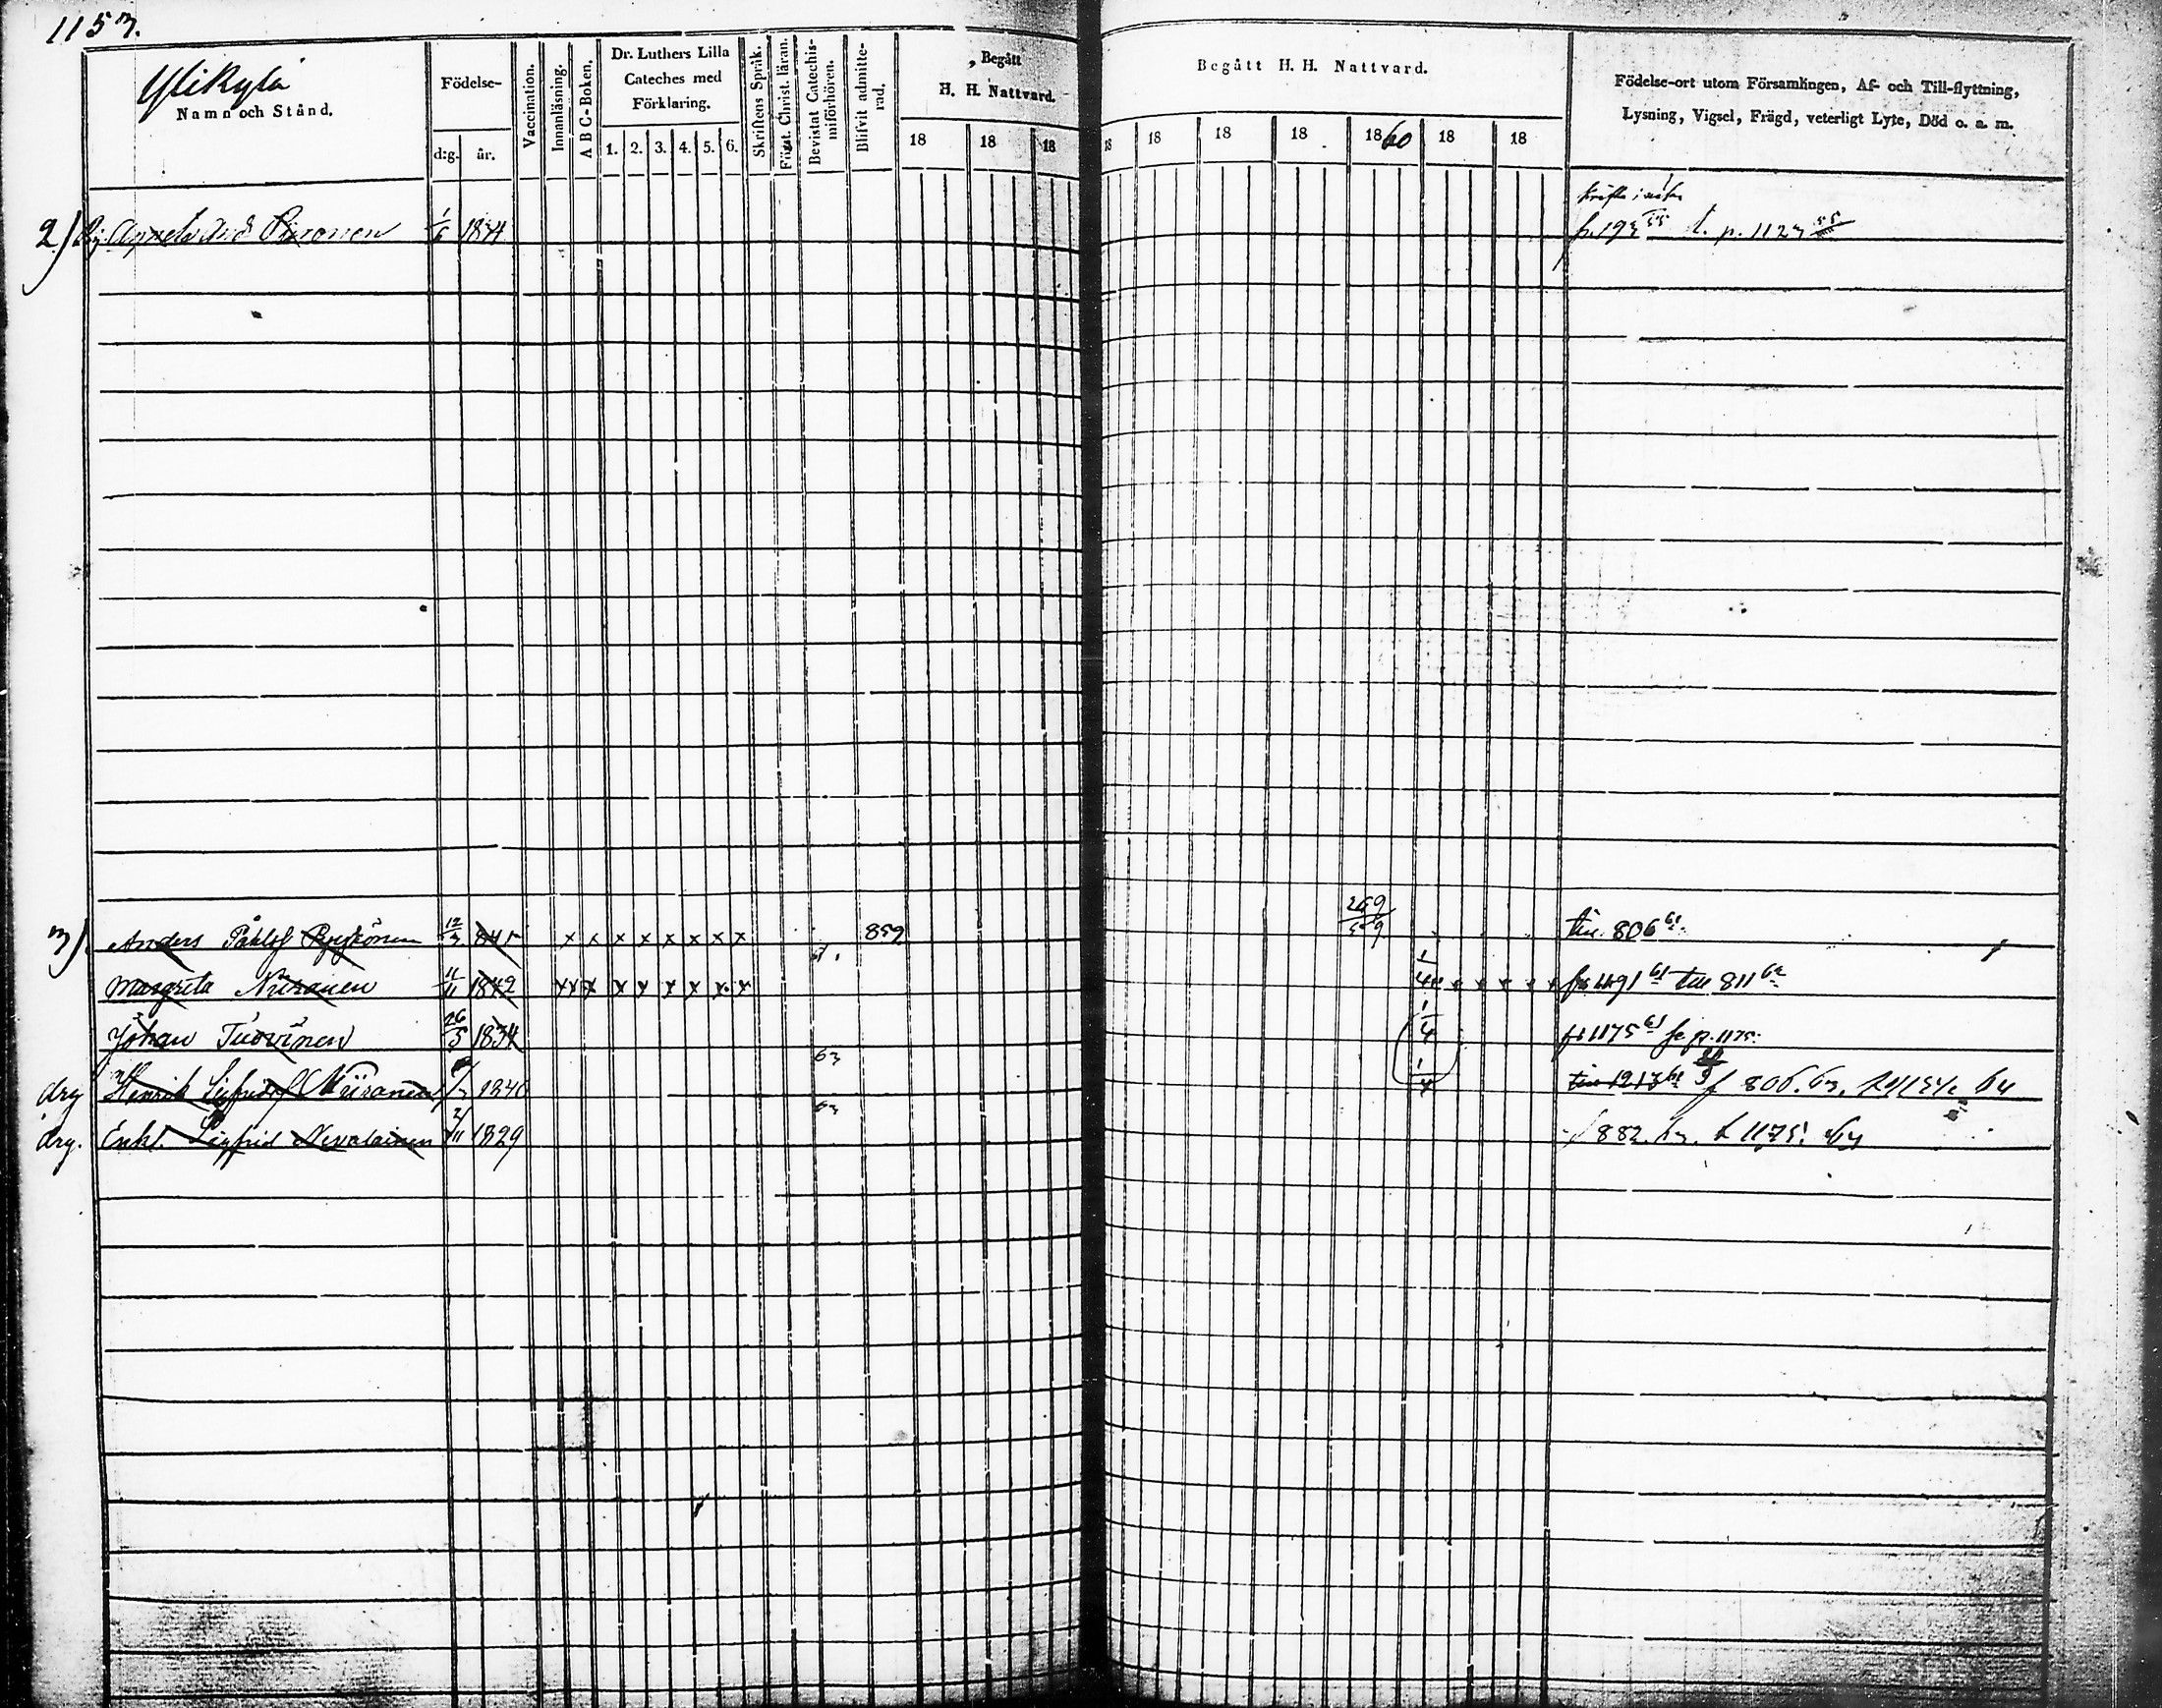 1153.
Ylikylä
Namn och Stånd.
Födelse-
d:g. år.
Vaccination.
Innanläsning.
A B C-Boken.
Dr. Luthers Lilla
Cateches med
Förklaring.
1. 2. 3. 4. 5. 6.
Skriftens Språk.
Christ. läran.
Bevistat Catechis-
miförhören.
Blifvit admitte-
rad.
Begått
H. H. Nattvard.
18 18 18
Begått H. H. Nattvard.
18 18 18 18 1860 18 18
Födelse-ort utom Församlingen, Af- och Till-flyttning,
Lysning, Vigsel, Frägd, veterligt Lyte, Död o. a. m.
2) 1844 t. p. 1123 55
3) Anders Påhlsf 12/3 x x x x x x x x 859 806 61
Margreta Niiranen 11/11 1842 x x x x x x x x x 1/4 811 62
Johan Tuovinen 26/5 1834 1/4 1175 61 p. 1175.
dry Henrik Sigfridsf Niiranen 1840 63 1/4 f 806. 63.
dry. Enkl. Sigfrid Nevalainen 2/11 1829 63 f 882. 63. t 1175.